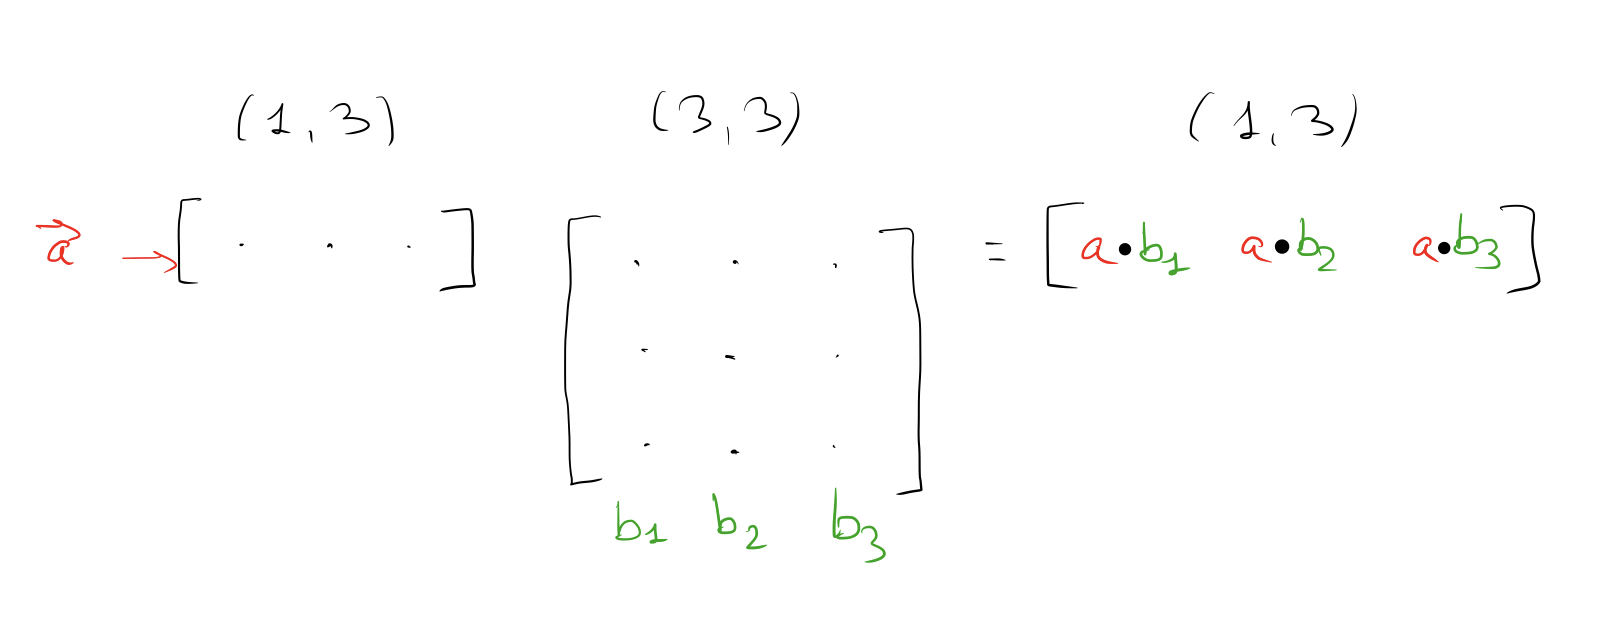 (1,3) (3,3) (1,3)
a → [ . . . ] [ . . . = [ a•b1 a•b2 a•b3 ]
. . .
. . . ]
b1 b2 b3